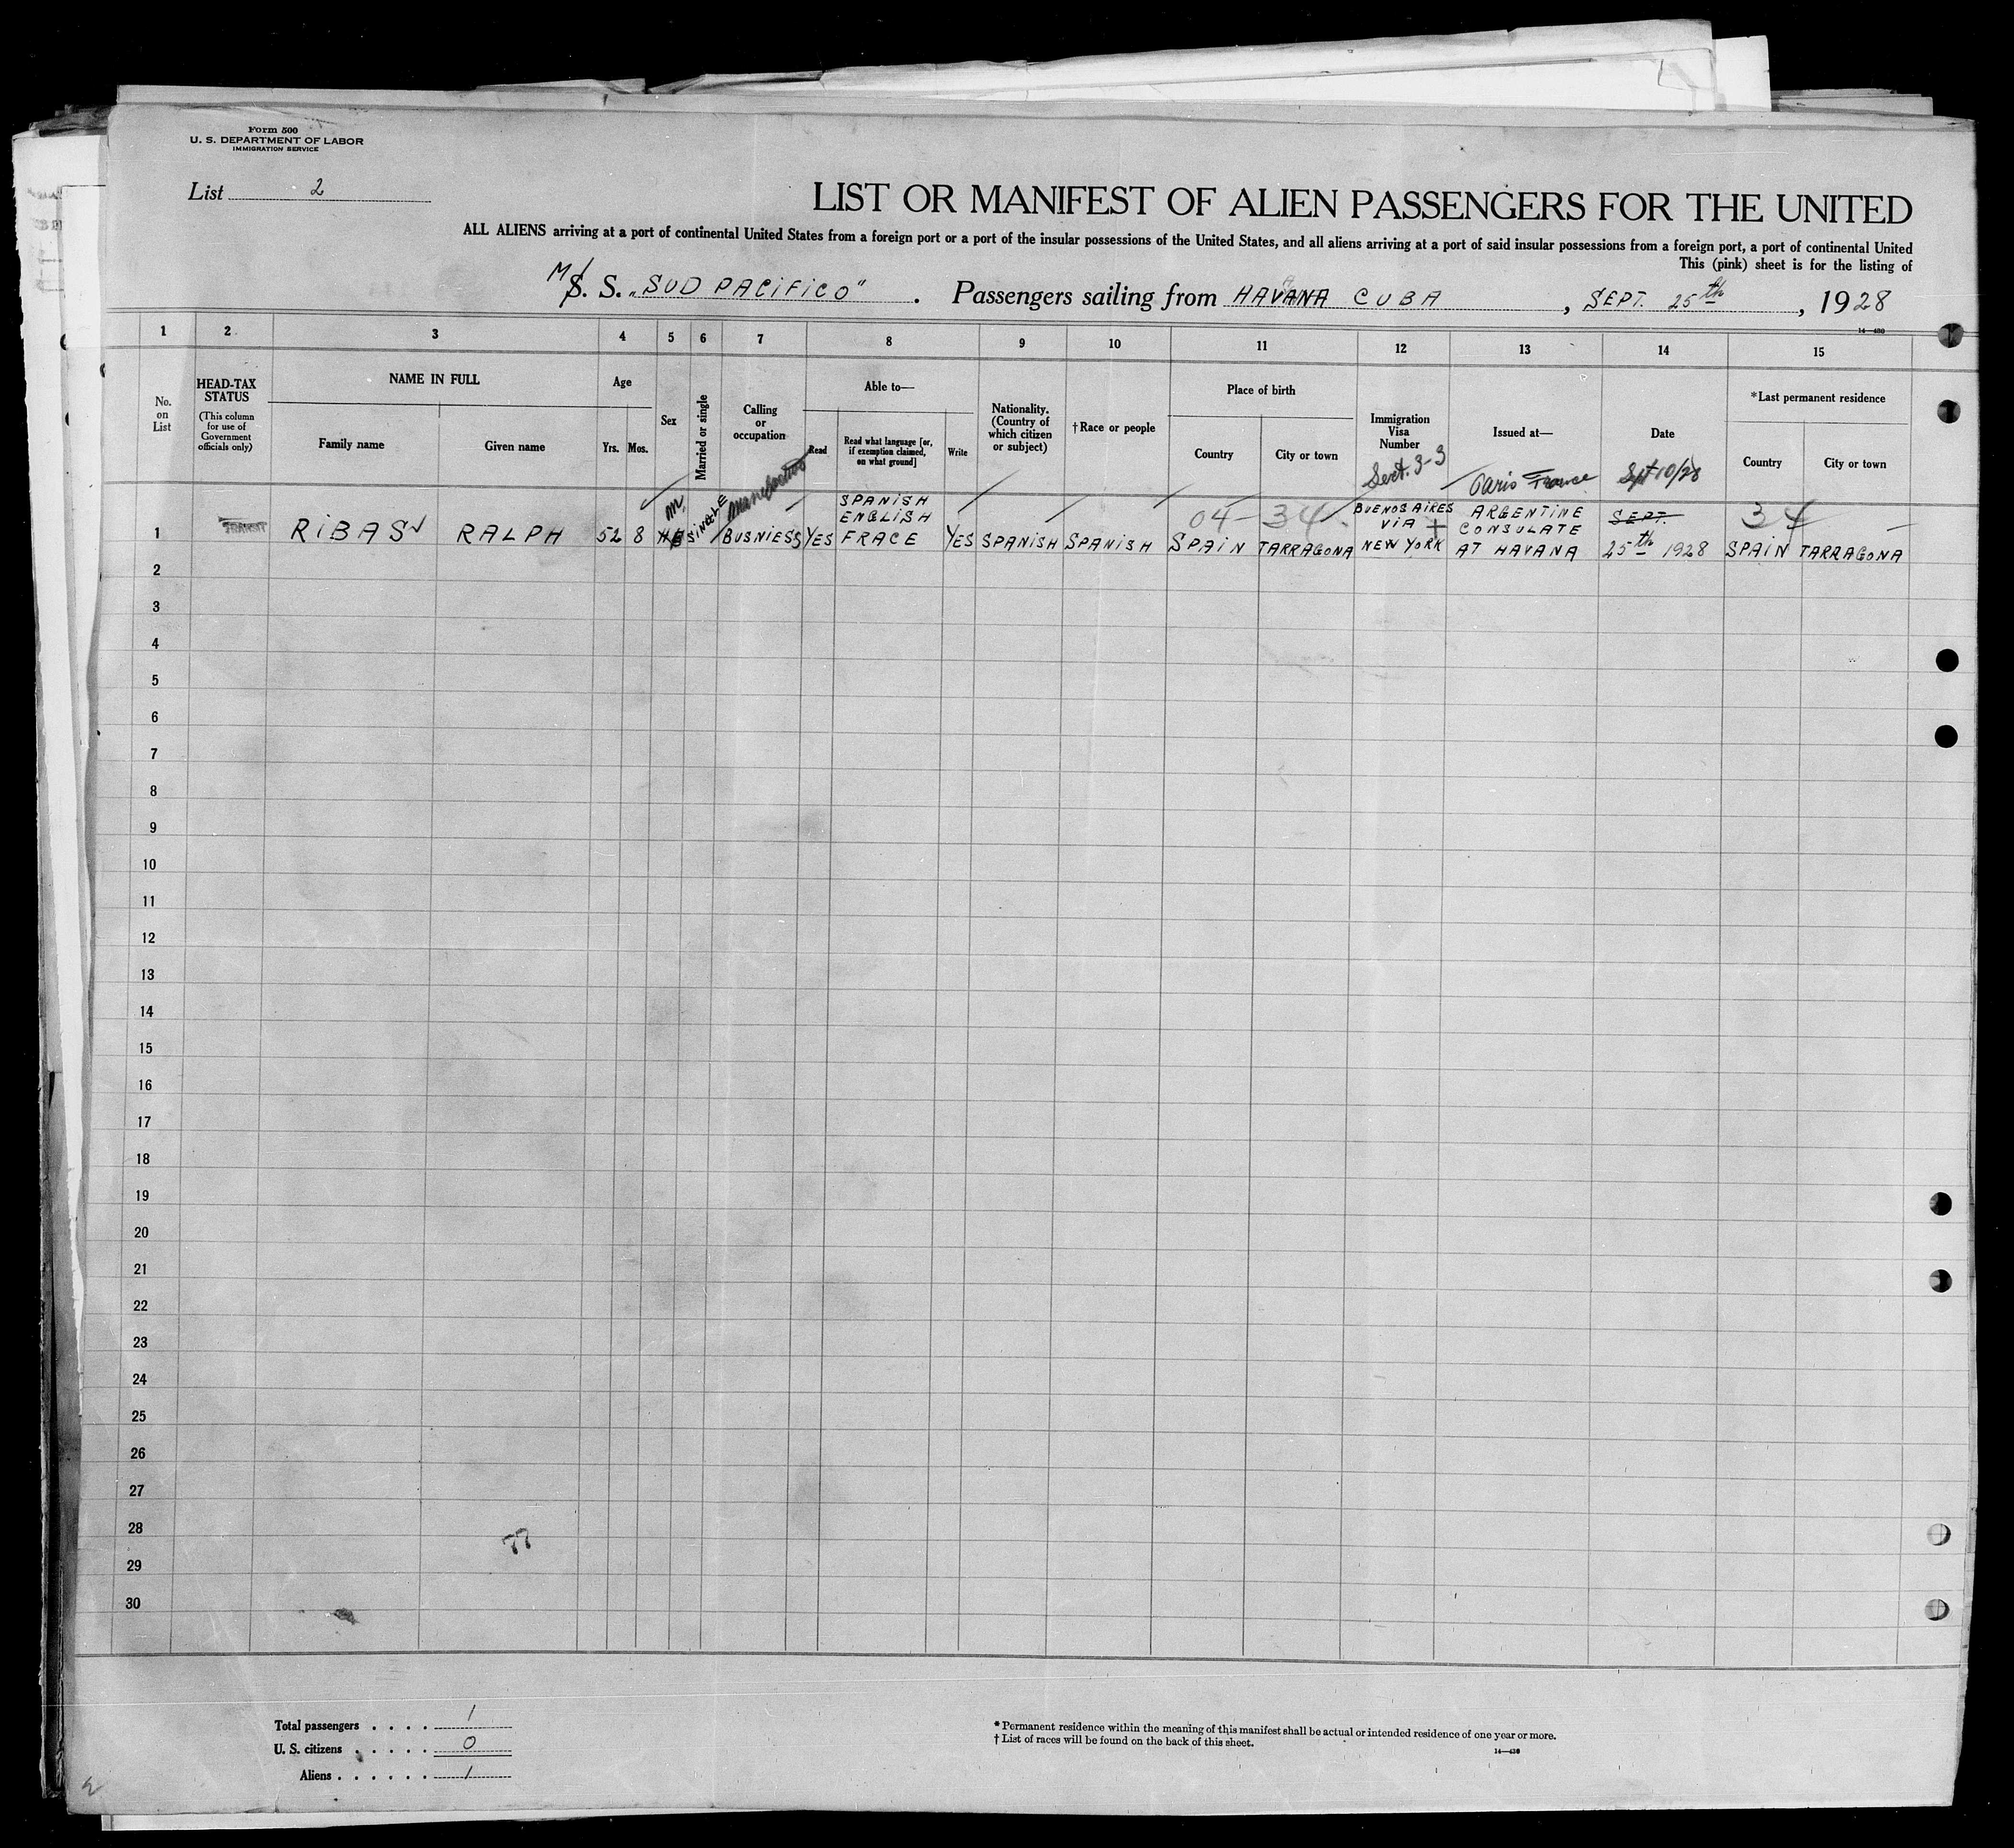 Form 500
U. S. DEPARTMENT OF LABOR
IMMIGRATION SERVICE
List 2
LIST OR MANIFEST OF ALIEN PASSENGERS FOR THE UNITED
ALL ALIENS arriving at a port of continental United States from a foreign port or a port of the insular possessions of the United States, and all aliens arriving at a port of said insular possessions from a foreign port, a port of continental United
This (pink) sheet is for the listing of
M/S. S. "SUD PACIFICO" . Passengers sailing from HAVANA CUBA , SEPT. 25th , 1928
14—430
1 2 3 4 5 6 7 8 9 10 11 12 13 14 15
No. on List
HEAD-TAX STATUS
(This column for use of Government officials only)
NAME IN FULL
Family name
Given name
Age
Yrs. Mos.
Sex
Married or single
Calling or occupation
Able to—
Read
Read what language [or, if exemption claimed, on what ground]
Write
Nationality. (Country of which citizen or subject)
†Race or people
Place of birth
Country
City or town
Immigration Visa Number
Sect. 3-3
Issued at—
Paris France
Date
Sept 10/28
*Last permanent residence
Country
City or town
1 TRANSIT RIBAS RALPH 52 8 M SINGLE BUSNIESS YES SPANISH ENGLISH FRACE YES SPANISH SPANISH 04- SPAIN 34 TARRAGONA BUENOS AIRES VIA NEW YORK ARGENTINE CONSULATE AT HAVANA SEPT. 25th 1928 34 SPAIN TARRAGONA
2
3
4
5
6
7
8
9
10
11
12
13
14
15
16
17
18
19
20
21
22
23
24
25
26
27
28
29
30
77
Total passengers . . . . 1
U. S. citizens . . . . . 0
Aliens . . . . . . 1
* Permanent residence within the meaning of this manifest shall be actual or intended residence of one year or more.
† List of races will be found on the back of this sheet.
14—430
2